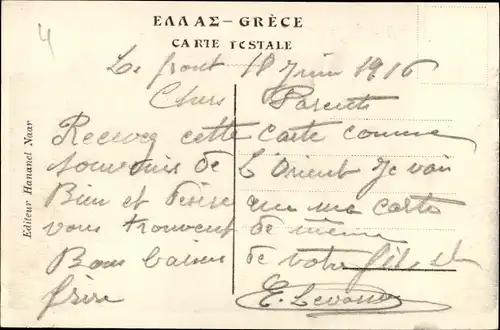 4
ΕΛΛΑΣ – GRÈCE
CARTE POSTALE
Le front 18 Juin 1916
Chers Parents
Recevez cette carte comme
souvenir de L'Orient Je vais
Bien et désire que ma carte
vous trouvent de même
Bons baisers de votre fils et
frère
E.
Editeur Hananel Naar